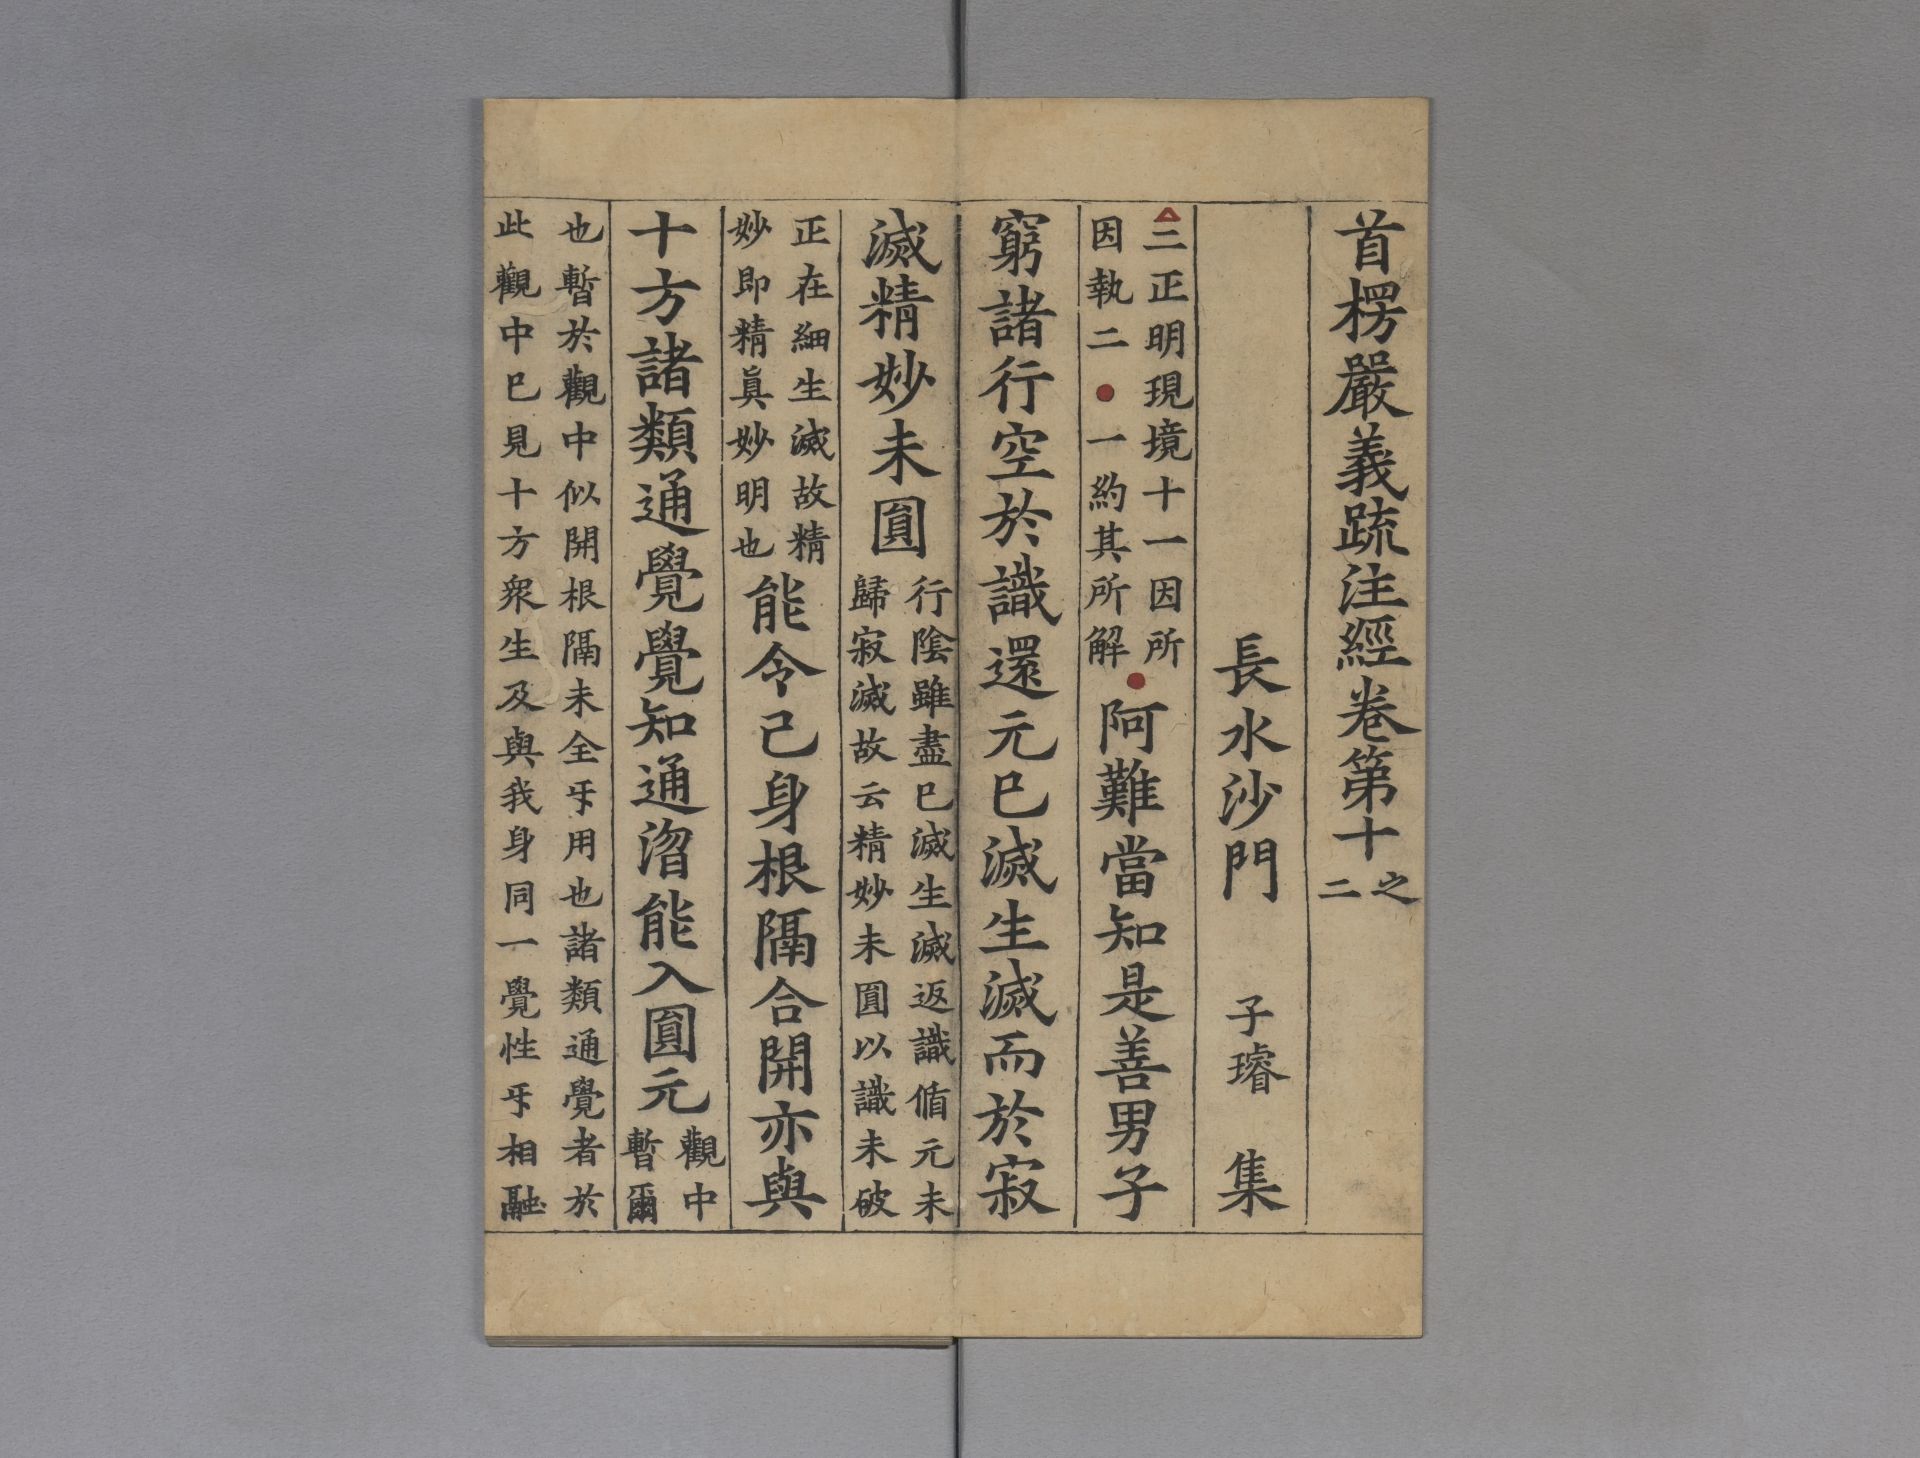 首楞嚴義疏注經卷第十之二
長水沙門 子璿 集
二正明現境十一因所
因執二一約其所解
阿難當知是善男子
窮諸行空於識還元已滅生滅而於寂
滅精妙未圓
行陰雖盡已滅生滅返識循元未
歸寂滅故云精妙未圓以識未破
正在細生滅故精
妙即精真妙明也
能令己身根隔合開亦與
十方諸類通覺覺知通㳷能入圓元
觀中
暫爾
也暫於觀中似開根隔未全㸦用也諸類通覺者於
此觀中已見十方衆生及與我身同一覺性㸦相融